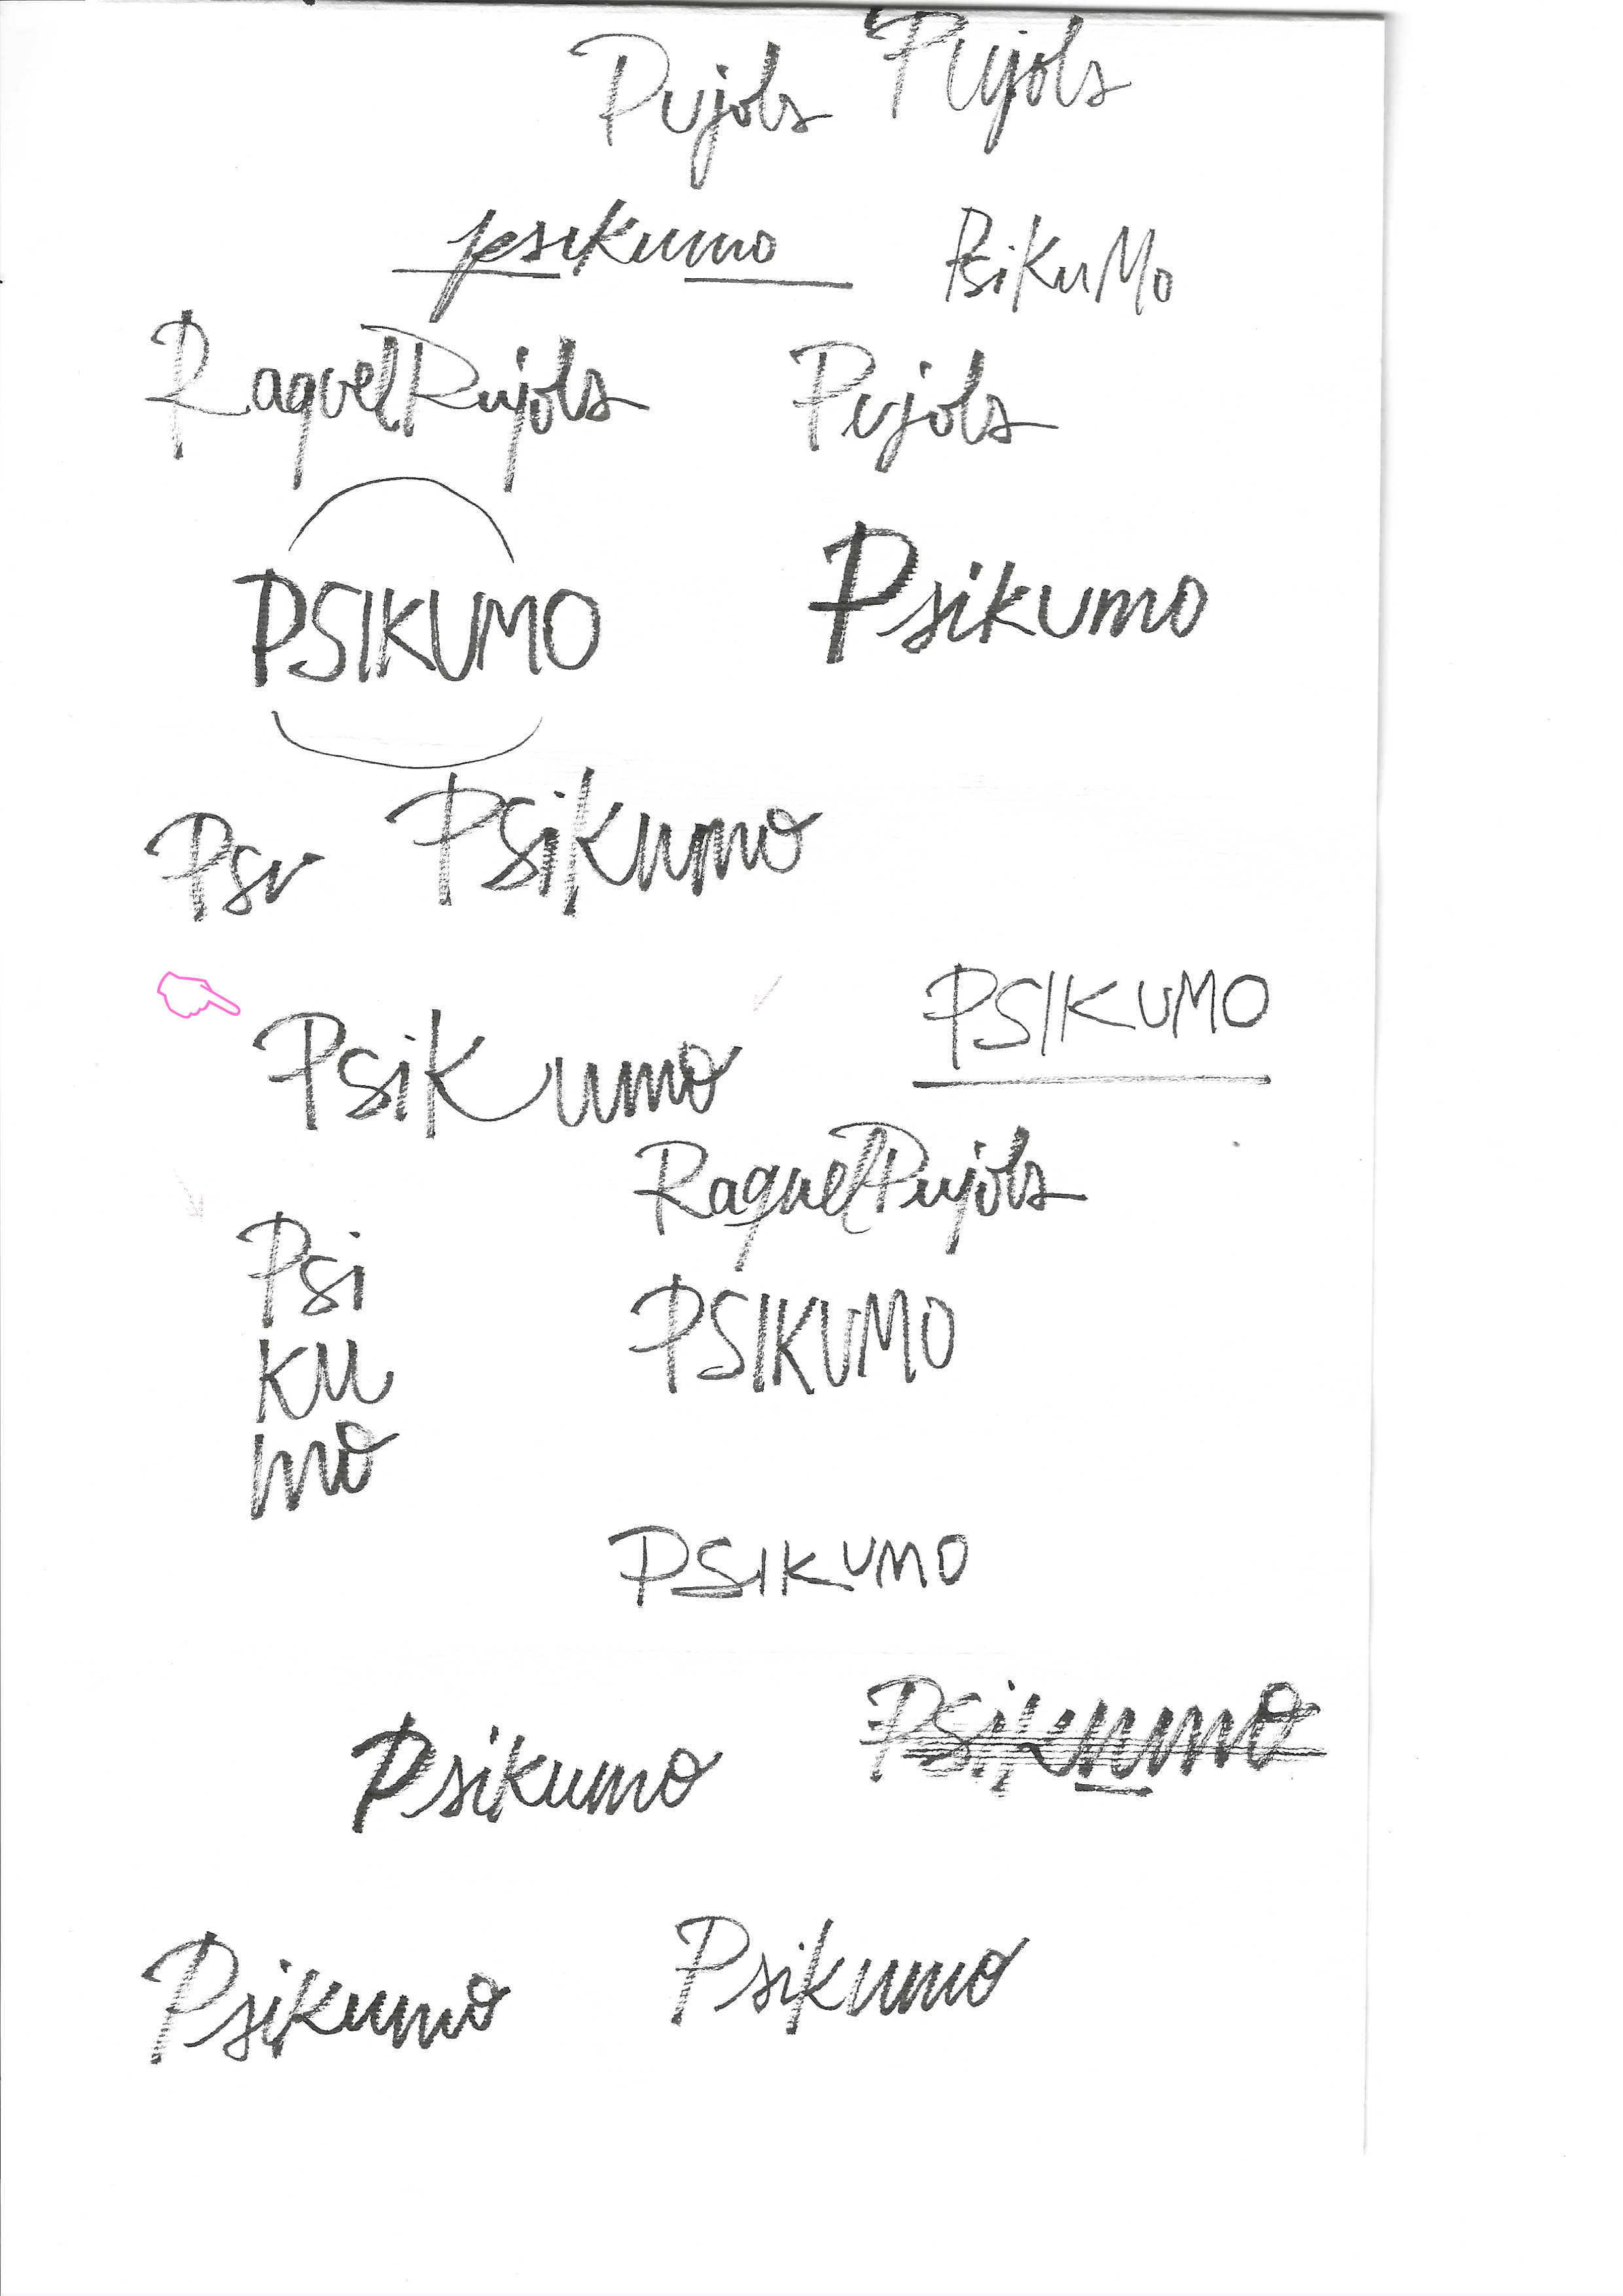 Pujols Pujols
psikumo PsiKuMo
Raquel Pujols Pujols
PSIKUMO Psikumo
Psi Psikumo
PSIKUMO
Psikumo
Raquel Pujols
Psi
KU
mo
PSIKUMO
PSIKUMO
Psikumo Psikumo
Psikumo Psikumo